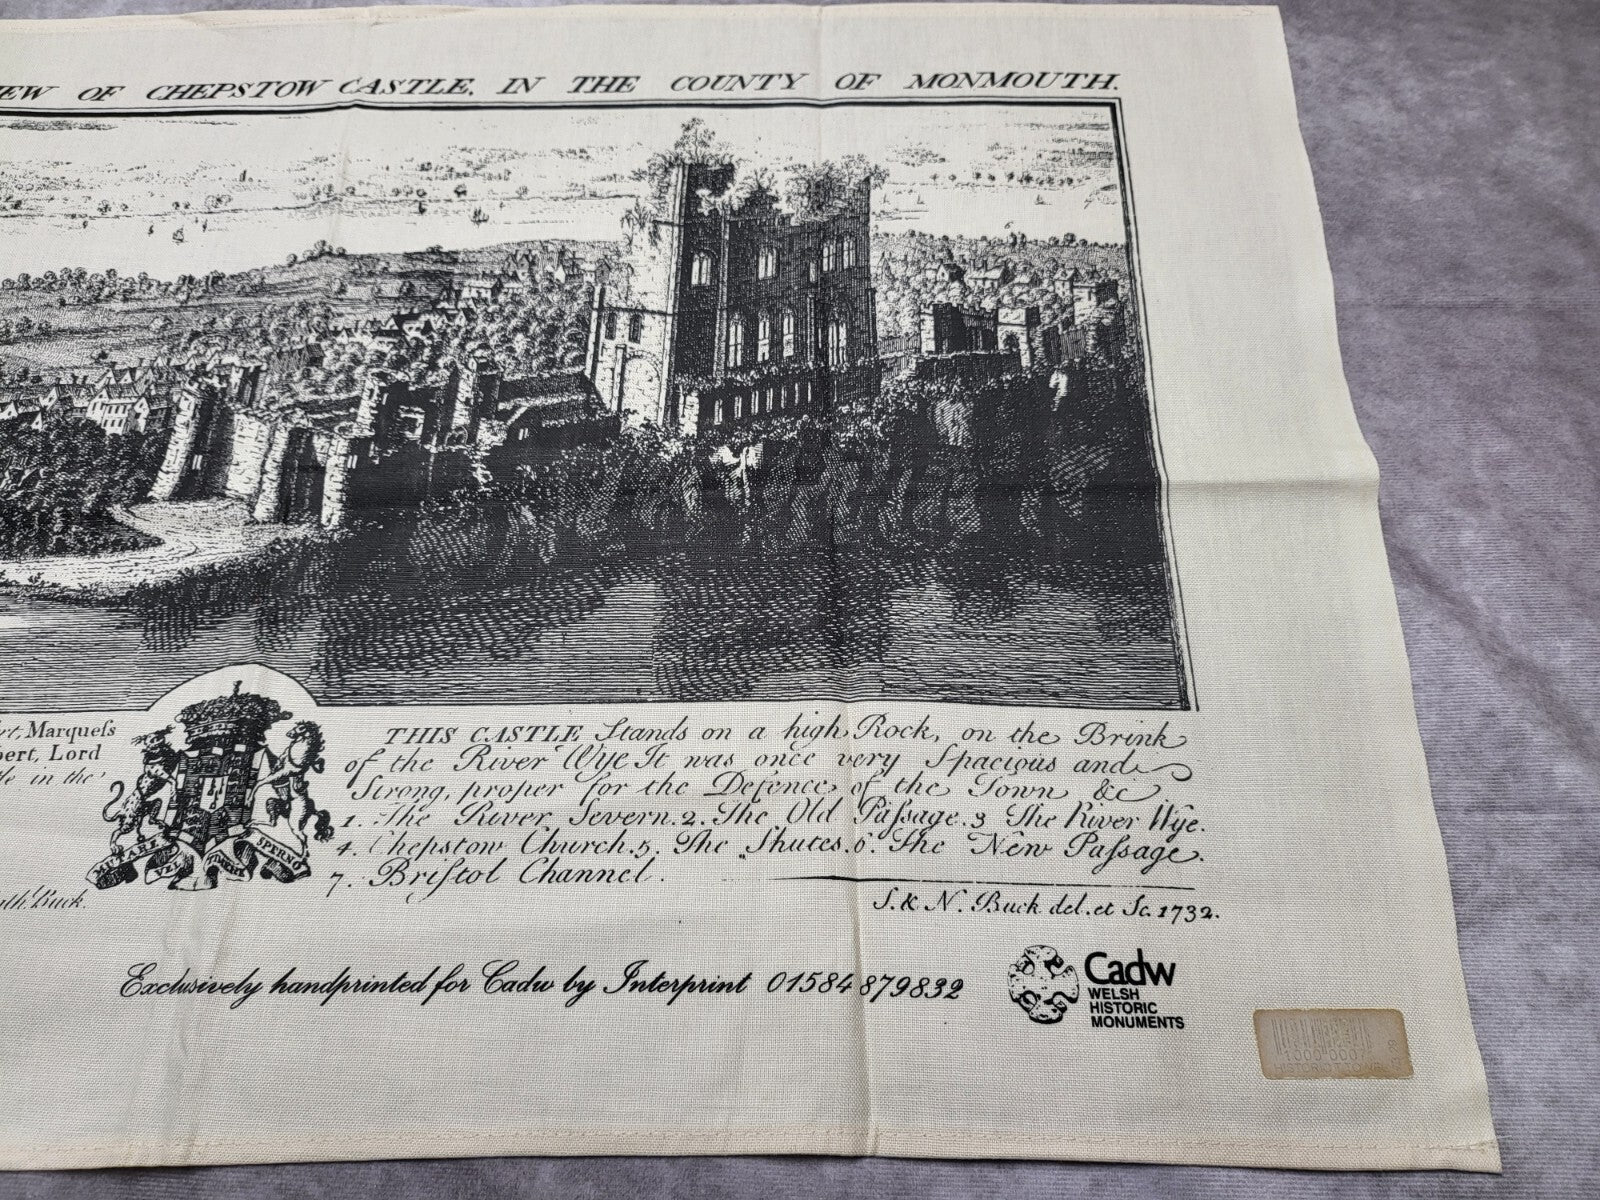 EW OF CHEPSTOW CASTLE, IN THE COUNTY OF MONMOUTH.
rt, Marqueſs
bert, Lord
le in the
THIS CASTLE Stands on a high Rock, on the Brink
of the River Wye It was once very Spacious and
Strong, proper for the Defence of the Town &c
1. The River Severn. 2. The Old Paſsage. 3 The River Wye.
4. Chepstow Church. 5. The Shutes. 6. The New Paſsage.
7. Briſtol Channel.
MUTARE VEL TIMERE SPERNO
ath. Buck.
S. & N. Buck del. et Sc. 1732.
Exclusively handprinted for Cadw by Interprint 01584 879832
Cadw
WELSH
HISTORIC
MONUMENTS